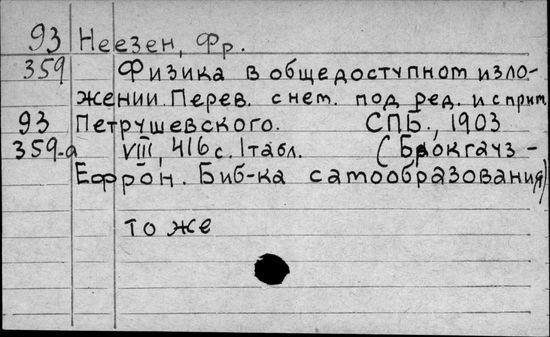 93 Неезен, Фр.
359 Физика в общедоступном изло-
жении. Перев. с нем. под ред. и с прим.
93 Петрушевского. СПБ., 1903
359-а VIII, 416 с. 1 табл. (Брокгауз -
Ефрон. Биб-ка самообразования)
то же